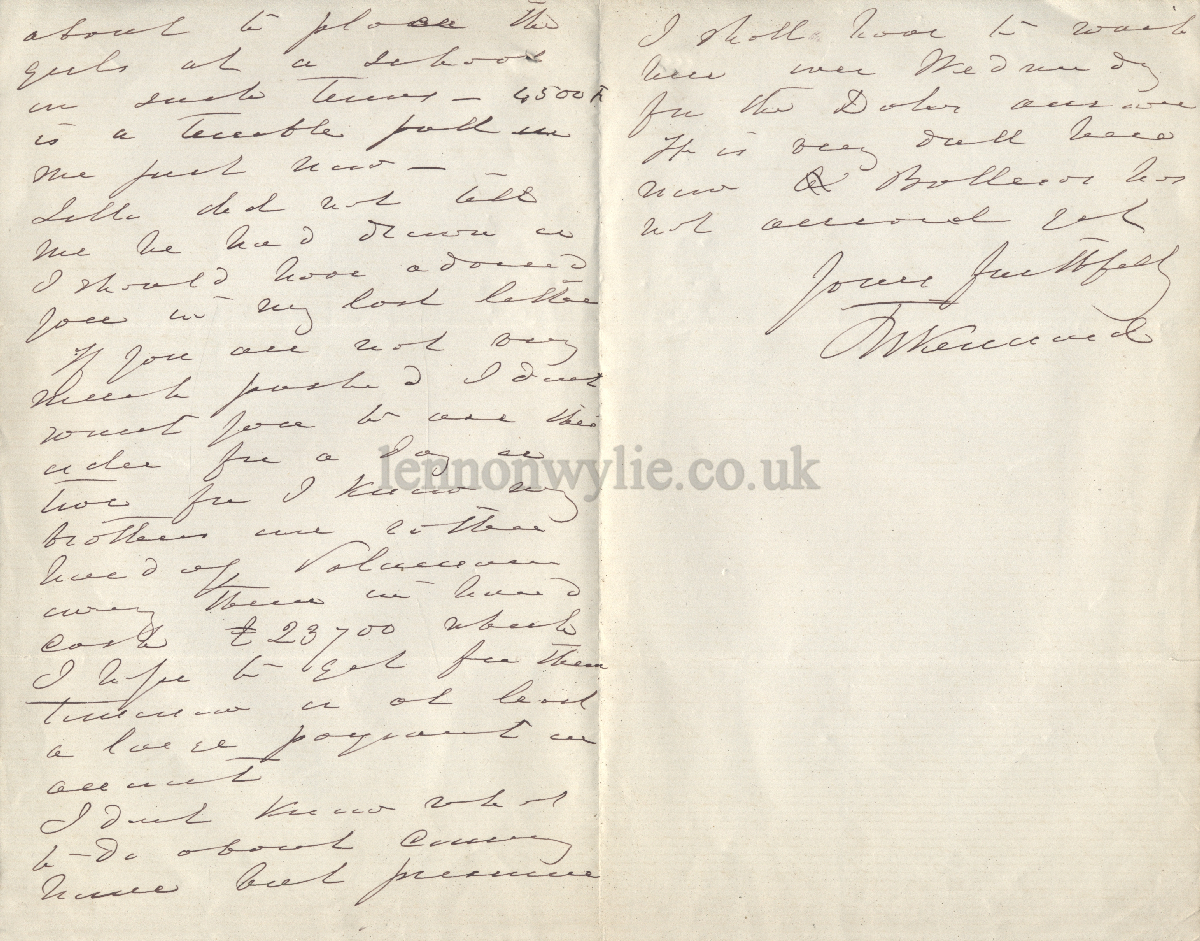 about to place the
girls at a school
on such terms – 4500 F
is a terrible pull on
me just now –
did not tell
me he had drawn or
I should have advised
you in my last letter
If you are not very
much pushed I don't
want you to use this
order for a day or
two for I know my
brothers are rather
hard up
owing them in hard
cash £23700 which
I hope to get for them
tomorrow or at least
a large payment on
account
I don't know what
to do about coming
home but presume
I shall have to wait
here over Wednesday
for the answer
It is very dull here
now & has
not arrived yet
Yours faithfully
Kennard
lennonwylie.co.uk